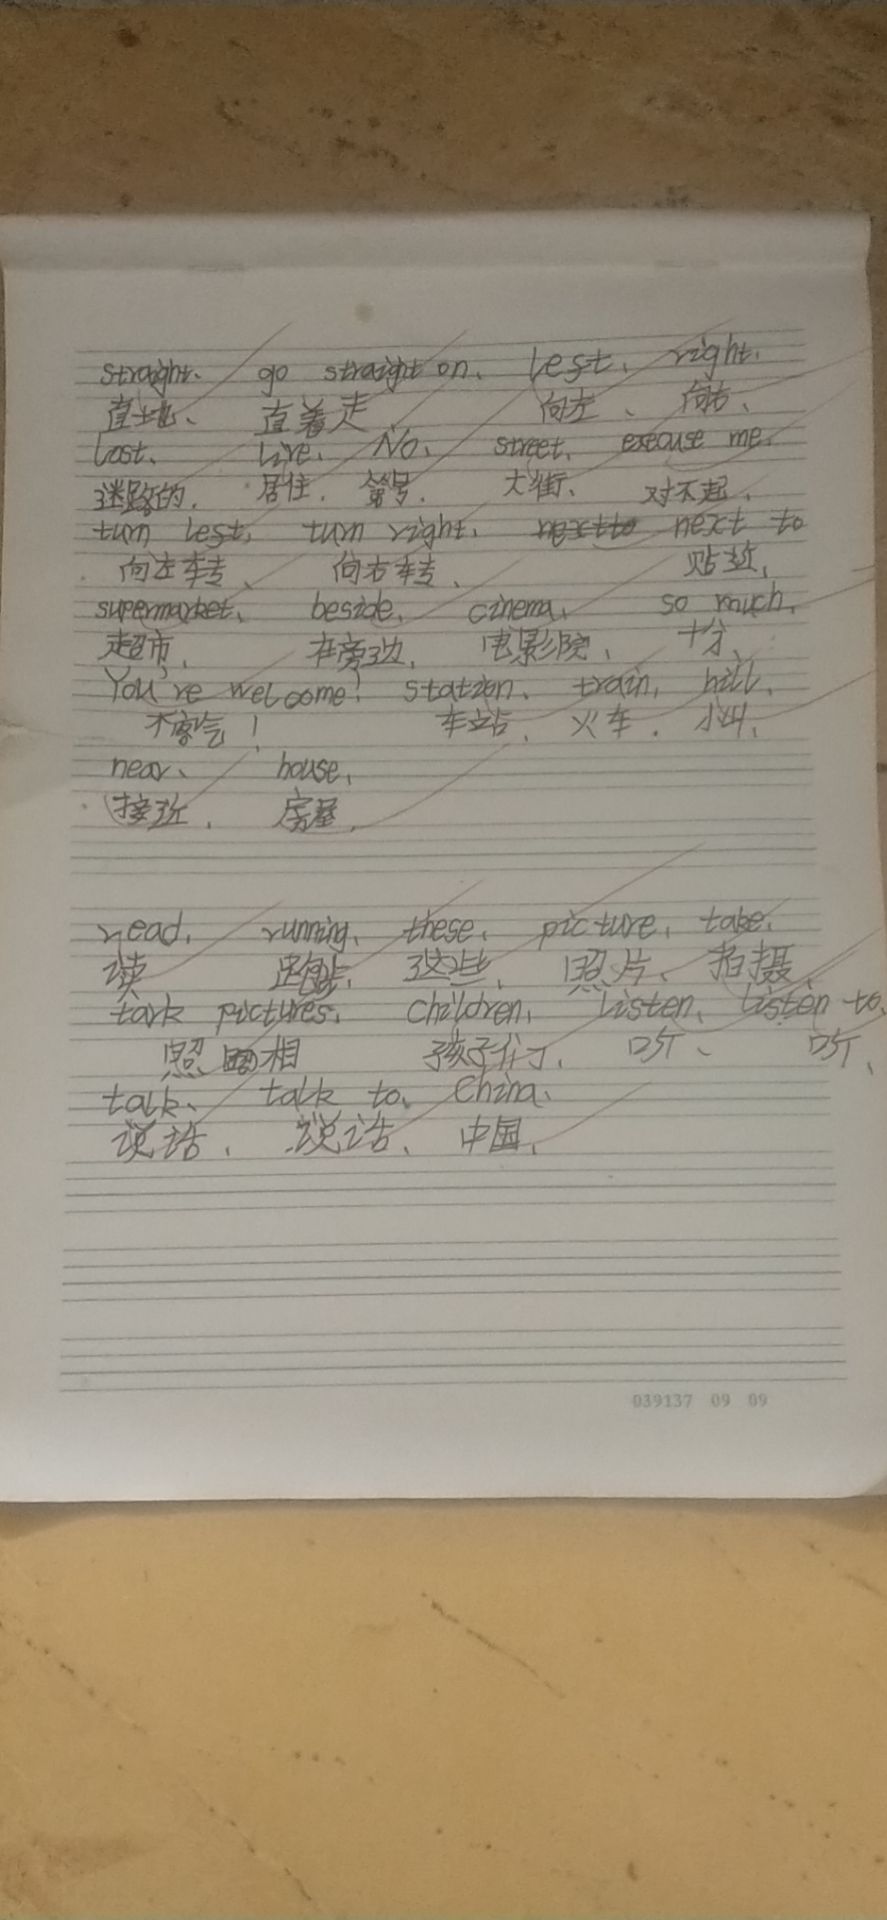 straight. go straight on. lest. right.
直地、 直着走、 向左、 向右、
lost. live. No. street. execuse me.
迷路的. 居住. 第号. 大街、 对不起.
turn lest. turn right. next to next to
向左转、 向右转、 贴近、
supermarket. beside. cinema. so much.
超市. 在旁边. 电影院、 十分、
You're welcome! station. train. hill.
不客气! 车站. 火车. 小山.
near、 house.
接近. 房屋.
read. running. these. picture. take.
读 跑步. 这些. 照片、 拍摄.
tark pictures. children. listen. listen to.
照相 孩子们、 听、 听、
talk. talk to. China.
说话. 说话、 中国.
039137 09 09